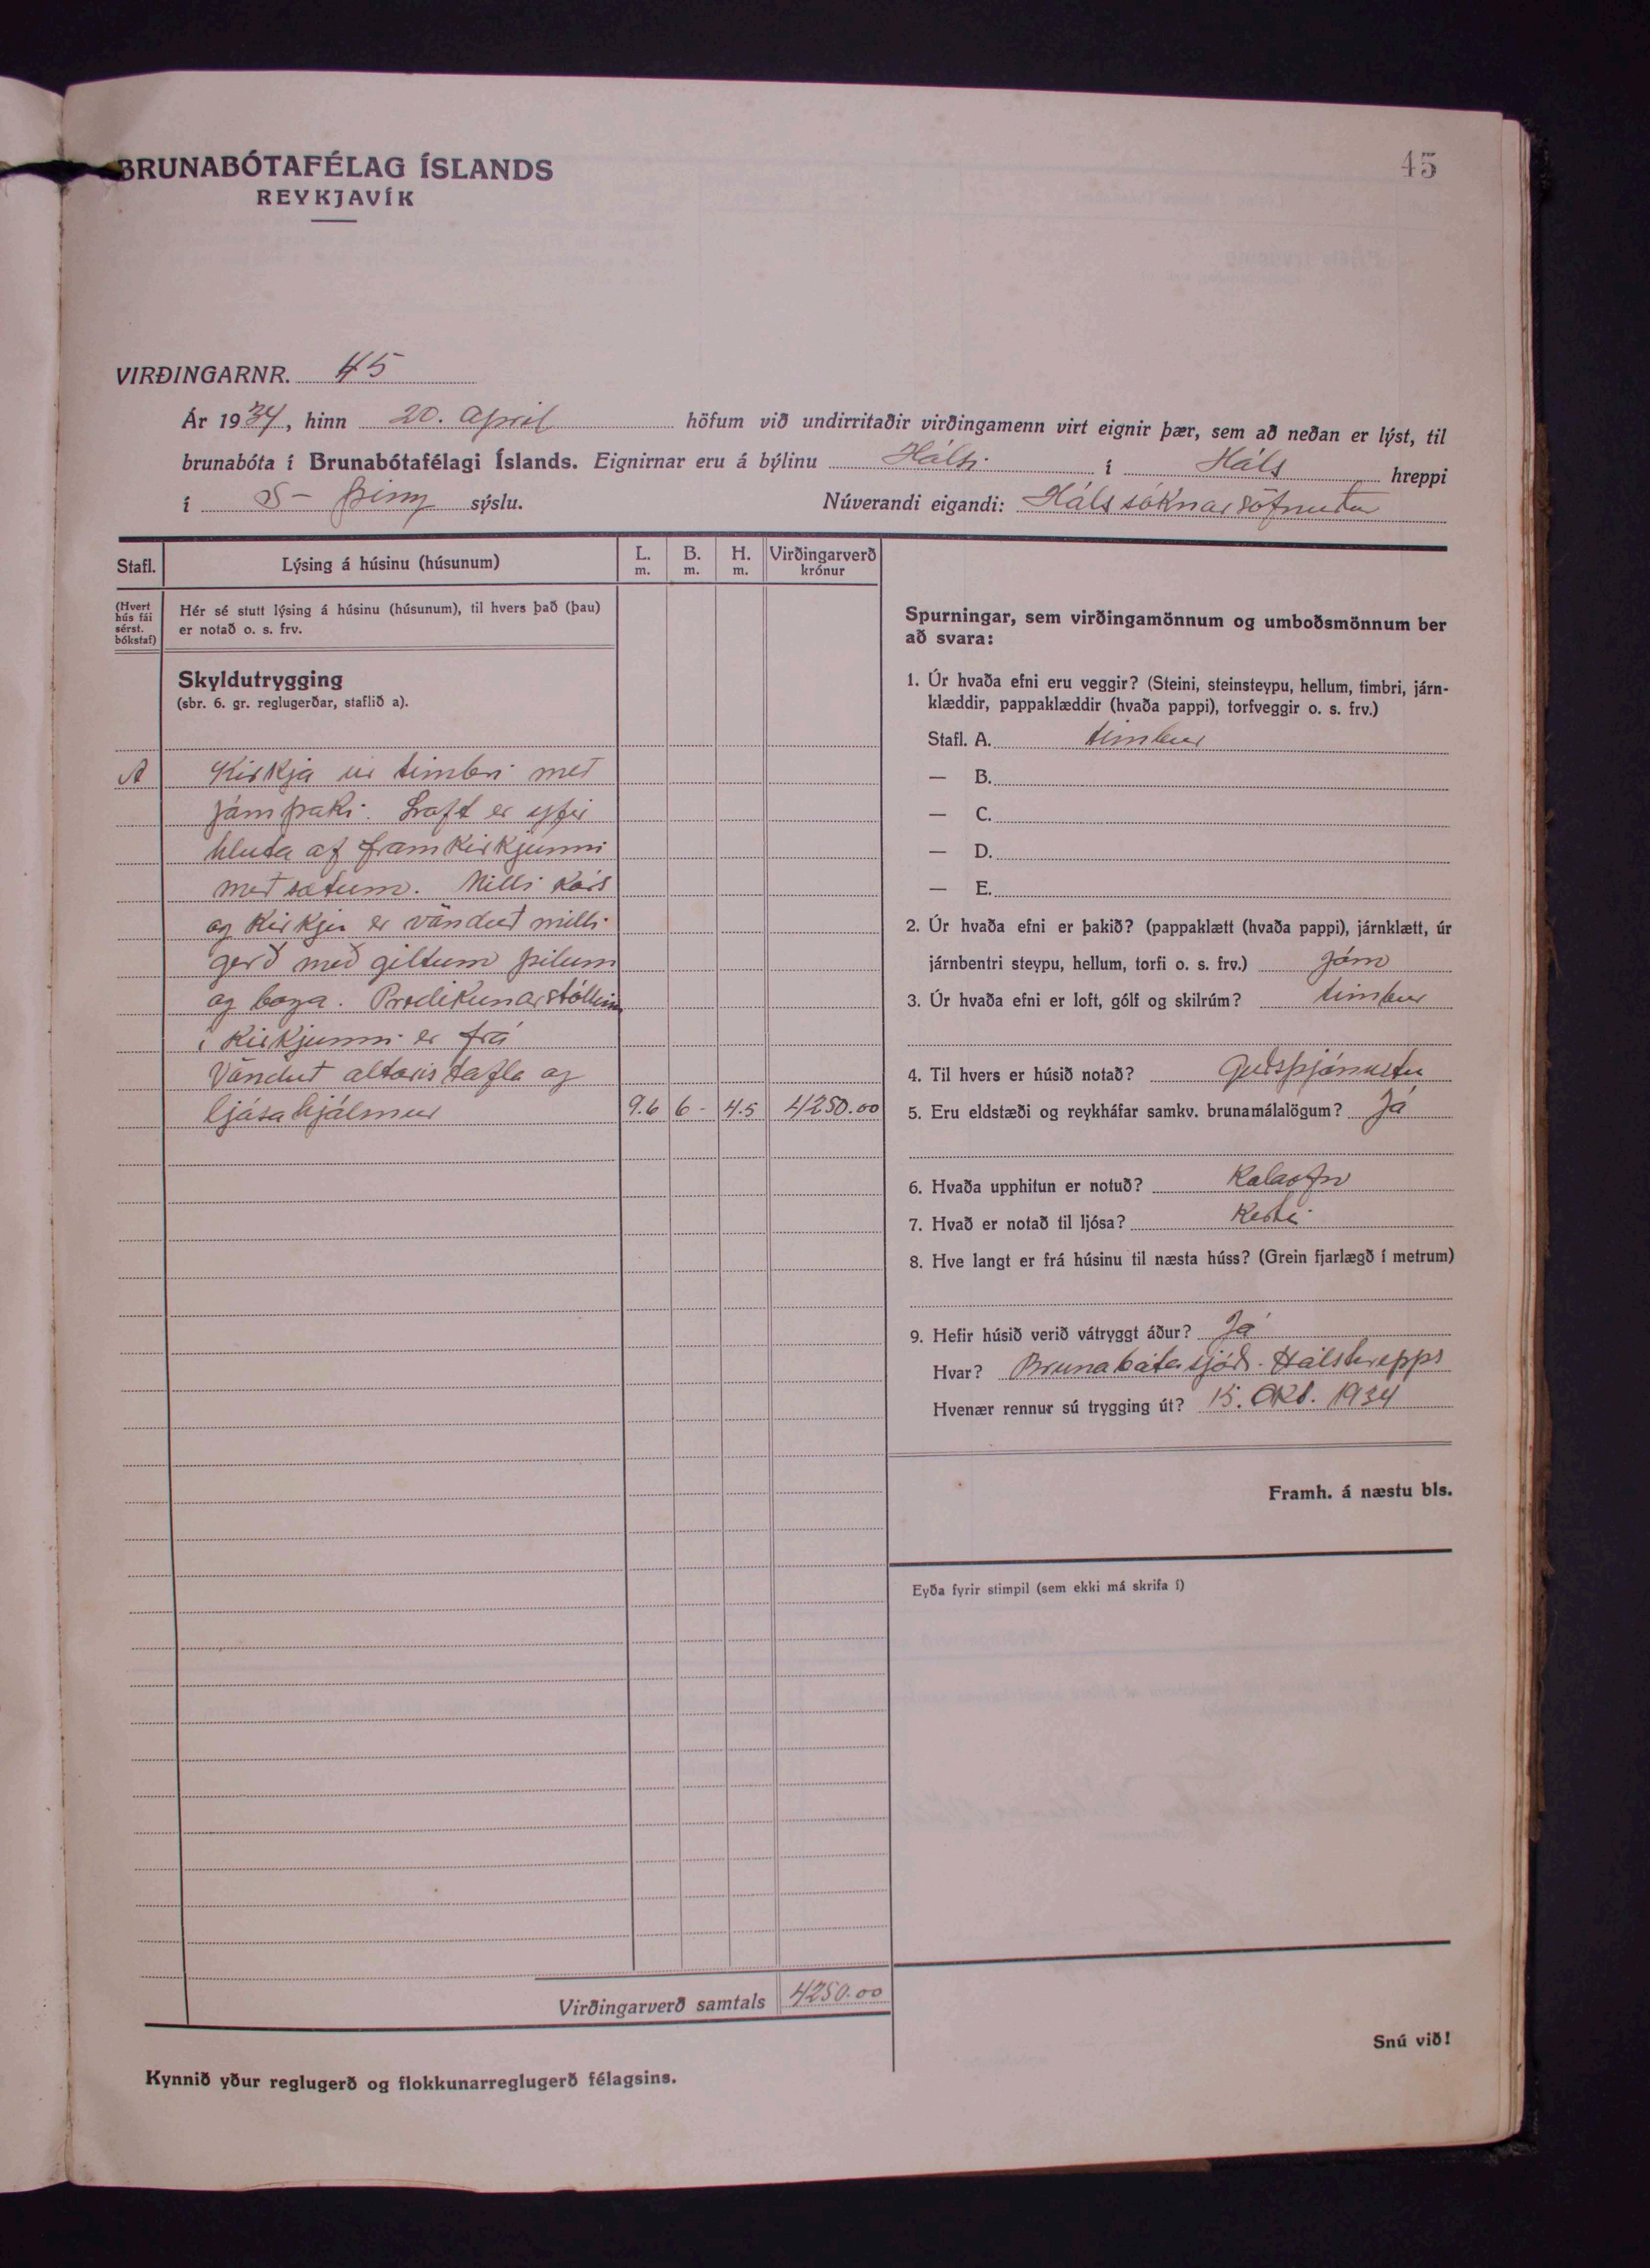 45
BRUNABÓTAFÉLAG ÍSLANDS
REYKJAVÍK
VIRÐINGARNR. 45
Ár 1934, hinn 20. apríl höfum við undirritaðir virðingamenn virt eignir þær, sem að neðan er lýst, til
brunabóta í Brunabótafélagi Íslands. Eignirnar eru á býlinu Hálsi í Háls hreppi
í S-þing sýslu. Núverandi eigandi: Hálssóknarsöfnuður
Stafl. Lýsing á húsinu (húsunum) L. m. B. m. H. m. Virðingarverð krónur
(Hvert hús fái sérst. bókstaf)
Hér sé stutt lýsing á húsinu (húsunum), til hvers það (þau)
er notað o. s. frv.
Skyldutrygging
(sbr. 6. gr. reglugerðar, staflið a).
A Kirkja úr timbri með
járnþaki. Loft er yfir
hluta af framkirkjunni
með sætum. Milli kórs
og kirkju er vönduð milli-
gerð með giltum pilum
og boga. Predikunarstóllinn
í kirkjunni er frá
Vönduð altaristafla og
ljósahjálmur 9.6 6- 4.5 4250.00
Virðingarverð samtals 4250.00
Kynnið yður reglugerð og flokkunarreglugerð félagsins.
Spurningar, sem virðingamönnum og umboðsmönnum ber
að svara:
1. Úr hvaða efni eru veggir? (Steini, steinsteypu, hellum, timbri, járn-
klæddir, pappaklæddir (hvaða pappi), torfveggir o. s. frv.)
Stafl. A. timbur
— B.
— C.
— D.
— E.
2. Úr hvaða efni er þakið? (pappaklætt (hvaða pappi), járnklætt, úr
járnbentri steypu, hellum, torfi o. s. frv.) járn
3. Úr hvaða efni er loft, gólf og skilrúm? timbur
4. Til hvers er húsið notað? Guðsþjónustu
5. Eru eldstæði og reykháfar samkv. brunamálalögum? Já
6. Hvaða upphitun er notuð? Kolaofn
7. Hvað er notað til ljósa? Kerti
8. Hve langt er frá húsinu til næsta húss? (Grein fjarlægð í metrum)
9. Hefir húsið verið vátryggt áður? Já
Hvar? Brunabótasjóði Hálshrepps
Hvenær rennur sú trygging út? 15. Okt. 1934
Framh. á næstu bls.
Eyða fyrir stimpil (sem ekki má skrifa í)
Snú við!